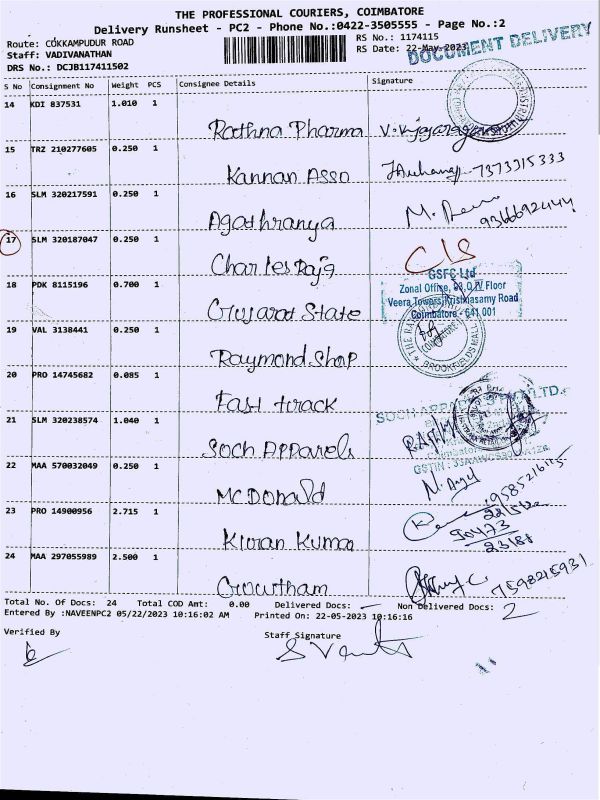 THE PROFESSIONAL COURIERS, COIMBATORE
Delivery Runsheet - PC2 - Phone No.:0422-3505555 - Page No.:2
Route: COKKAMPUDUR ROAD
RS No.: 1174115
Staff: VADIVANATHAN
RS Date: 22-May-2023
DOCUMENT DELIVERY
DRS No.: DCJB117411502
S No Consignment No Weight PCS Consignee Details Signature
14 KDI 837531 1.010 1
Rathna Pharma
15 TRZ 210277605 0.250 1
Kannan Asso 7373315333
16 SLM 320217591 0.250 1
Agathranya M. 9366692444
17 SLM 320187047 0.250 1
Charles Raja C/S
GSFC Ltd
Zonal Office, Floor
18 PDK 8115196 0.700 1
Veera Towers Krishnasamy Road
Gujarat State Coimbatore - 641 001
19 VAL 3138441 0.250 1
Raymond Shop
BROOKFIELDS MALL
20 PRO 14745682 0.085 1
Fast track
21 SLM 320238574 1.040 1
Soch Apparels
22 MAA 570032049 0.250 1
McDonald N.
23 PRO 14900956 2.715 1
Kiran Kumar 90473
23188
24 MAA 297055989 2.500 1
Gowtham 7598215931
Total No. Of Docs: 24 Total COD Amt: 0.00 Delivered Docs: Non Delivered Docs: 2
Entered By :NAVEENPC2 05/22/2023 10:16:02 AM Printed On: 22-05-2023 10:16:16
Verified By Staff Signature